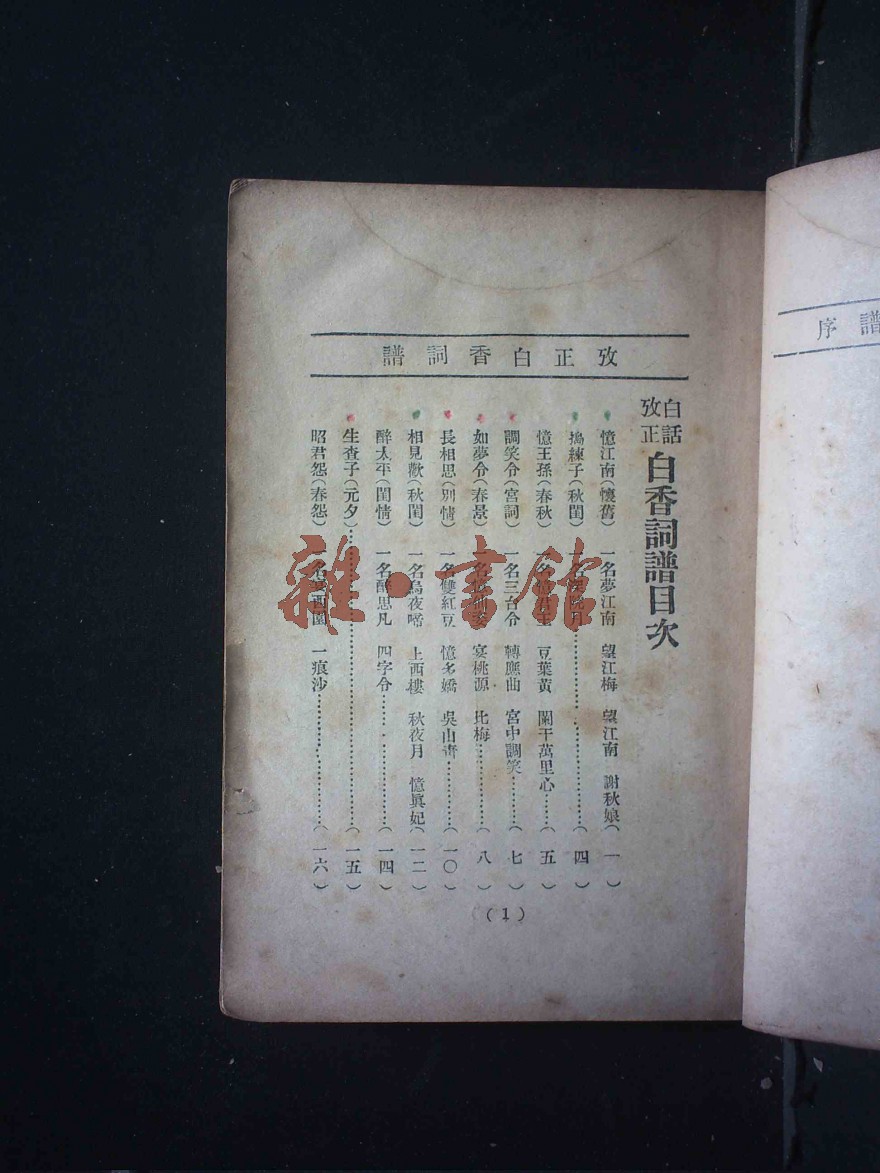 攷正白香詞譜
白話
攷正
白香詞譜目次
憶江南(懷舊) 一名夢江南 望江梅 望江南 謝秋娘(一)
搗練子(秋閨) 一名深院月………(四)
憶王孫(春秋) 一名憶君王 豆葉黃 闌干萬里心……(五)
調笑令(宮詞) 一名三台令 轉應曲 宮中調笑……(七)
如夢令(春景) 一名 宴桃源 比梅………(八)
長相思(別情) 一名雙紅豆 憶多嬌 吳山靑………(一〇)
相見歡(秋閨) 一名烏夜啼 上西樓 秋夜月 憶眞妃(一二)
醉太平(閨情) 一名醉思凡 四字令………(一四)
生查子(元夕)………(一五)
昭君怨(春怨) 一名 西園 一痕沙………(一六)
(1)
譜序
雜·書館